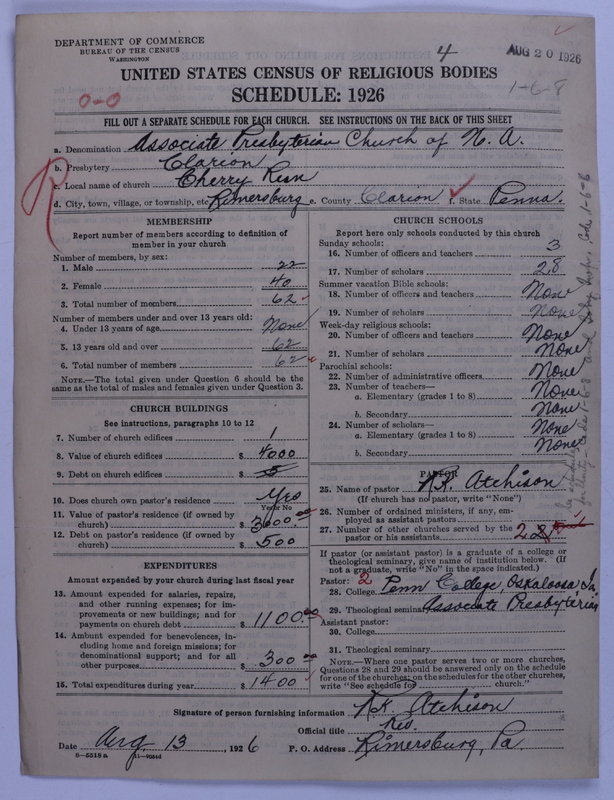 DEPARTMENT OF COMMERCE
BUREAU OF THE CENSUS
WASHINGTON
4
AUG 20 1926
1-6-8
UNITED STATES CENSUS OF RELIGIOUS BODIES
0-0
SCHEDULE: 1926
FILL OUT A SEPARATE SCHEDULE FOR EACH CHURCH. SEE INSTRUCTIONS ON THE BACK OF THIS SHEET
a. Denomination Associate Presbyterian Church of N. A.
b. Presbytery Clarion
c. Local name of church Cherry Run
d. City, town, village, or township, etc. Rimersburg e. County Clarion f. State Penna.
MEMBERSHIP
Report number of members according to definition of
member in your church
Number of members, by sex:
1. Male 22
2. Female 40
3. Total number of members 62
Number of members under and over 13 years old:
4. Under 13 years of age None
5. 13 years old and over 62
6. Total number of members 62
NOTE.—The total given under Question 6 should be
same as the total of males and females given under Question 3.
CHURCH BUILDINGS
See instructions, paragraphs 10 to 12
7. Number of church edifices 1
8. Value of church edifices $ 4000
9. Debt on church edifices $
10. Does church own pastor's residence Yes
Yes or No
11. Value of pastor's residence (if owned by
church) $ 3000.00
12. Debt on pastor's residence (if owned by
church) $ 500
EXPENDITURES
Amount expended by your church during last fiscal year
13. Amount expended for salaries, repairs,
and other running expenses; for im-
provements or new buildings; and for
payments on church debt $ 1100.00
14. Amount expended for benevolences, in-
cluding home and foreign missions; for
denominational support; and for all
other purposes $ 300.00
15. Total expenditures during year $ 1400
CHURCH SCHOOLS
Report here only schools conducted by this church
Sunday schools:
16. Number of officers and teachers 3
17. Number of scholars 28
Summer vacation Bible schools:
18. Number of officers and teachers None
19. Number of scholars None
Week-day religious schools:
20. Number of officers and teachers None
21. Number of scholars None
Parochial schools:
22. Number of administrative officers None
23. Number of teachers—
a. Elementary (grades 1 to 8) None
b. Secondary None
24. Number of scholars—
a. Elementary (grades 1 to 8) None
b. Secondary None
PASTOR
25. Name of pastor Atchison
(If church has no pastor, write "None")
26. Number of ordained ministers, if any, em-
ployed as assistant pastors
27. Number of other churches served by the
pastor or his assistants 2
If pastor (or assistant pastor) is a graduate of a college or
theological seminary, give name of institution below. (If
not a graduate, write "No" in the space indicated.)
Pastor: 2
28. College Penn College, Oskaloosa Ia.
29. Theological seminary Associate Presbyterian
Assistant pastor:
30. College
31. Theological seminary
NOTE.—Where one pastor serves two or more churches,
Questions 28 and 29 should be answered only on the schedule
for one of the churches; on the schedules for the other churches,
write "See schedule for church."
Signature of person furnishing information Atchison
Official title Rev.
Date Aug. 13 1926 P. O. Address Rimersburg, Pa.
6—5518 a